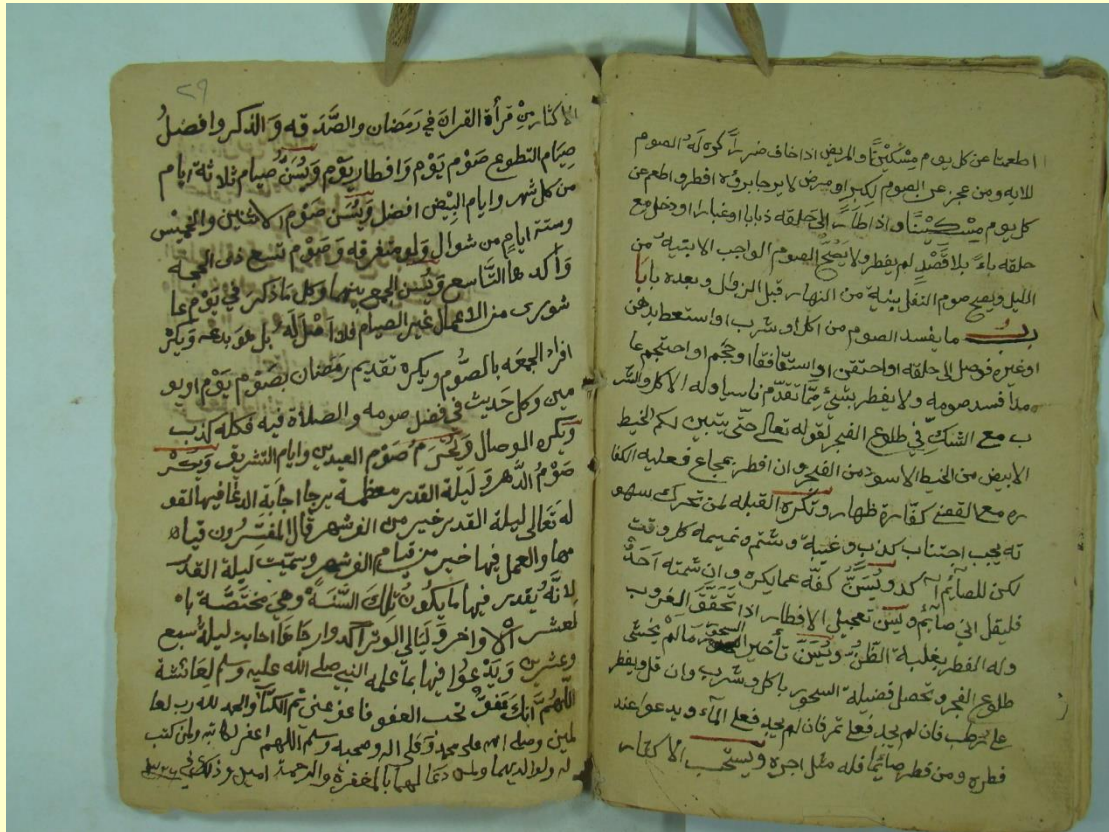 اطعمتا عن كل يوم مِسْكِيْنًا والمريض اذا خاف ضررًا كره له الصوم
للايه ومن عجر عن الصوم لكبر او مرض لا يرجا برؤه افطر واطعم عن
كل يوم مِسْكِيْنًا واذا طار الى حلقه ذبابا اوغبارا او دخل مع
حلقه ماءً بلا قَصْدٍ لم يفطر ولا يَصُحُّ الصوم الواجب الا بنية من
الليل ويصح صوم النفل بنية من النهار قبل الزوال وبعده بابا
باب ما يفسد الصوم من اكل او شرب او استعط بدهن
او غيره فوصل الى حلقه او احتقن او استقافقا او حجم او احتجم عا
مدا فسد صومه ولا يفطر بشئ مِمَّا تقدّم ناسيا وله الاكل والشر
ب مع الشكِّ في طلوع الفجر لقوله تعالى حتّى يتبين لكم الخيط
الابيض من الخيط الاسود من الفجر وان افطر بجماع فعليه الكفا
ره مع القضى كفّارة ظهار وتكره القبله لمن تحرك سهو
ته يجب اجتناب كذب وغيبة وشتم ونميمه كل وقت
لكن للصائم آكد ويُسَنُّ كفّه عما يكره وان شتمه احَدٌ
فليقل اني صآئم ويسن تعجيل الافطار اذا تحَقَّقَ الغروب
وله الفطر بغلبة الظَّنِّ ويُسَنُّ تأخير السحور مَا لَمْ يَخْشى
طلوع الفجر وتحصل فضيلة السحور باكل وشرب وان قل ويفطر
على رطب فان لم يجد فعلى تمر فان لم يجد فعلى المآء ويدعوا عند
فطره ومن فطر صائِمًا فله مثل اجره ويستحب الاكثار
٢٩
الاكثار مِنْ قرأة القران في رَمَضان والصَّدقه وَالذكر وافضلُ
صِيَام التطوع صَوْم يَوْم وَافطار يَوْم وَيُسَنُّ صيام ثلاثة ايام
من كل شهر وايام البِيْض افضل وَيُسَن صَوْم الاثنين والخميْس
وستة ايامٍ من شوال ولو متفرقه وَصَوْم تسع ذى الحجه
وَأكدها التَّاسع وَيُسَن الجمع بينهما وكل مَا ذكر في يَوْم عا
شورى من الاعمال غير الصيام فلا اَصْل لَهُ بل هو بدعه وَيكره
افراد الجمعه بالصَّوم ويكره تقديم رمَضان بصَوْم يَوْم او يو
مين وكل حديث في فضل صومه والصلاة فيه فكله كذب
وَيكره الوصال وَيَحْرم صَوْم العيدين وايام التشريق وَيكره
صَوْمُ الدَّهر وَليلة القدر معظمة يرجا اجابة الدعا فيها لقو
له تعَالى ليلة القدر خير من الف شهر قال المفسّرُون قيا
مها والعمل فيها خير من قيام الف شهر وسمّيت ليلة القدر
لانّه يُقدر فيها مَا يكونُ تلك السَّنَةُ وهيَ مختَصَّة با
لعشر الاواخر وَلَيَالي الوتر آكد وارجاها احابت ليلة سبع
وعشرين وَيَدْعُوا فيها بما علمه النبي صلى الله عليه وسلم لعَائشة
اللَّهُمَّ انك عَفوٌّ تحب العفو فاعف عنى تم الكتاب والحمد لله رب لعا
لمين وصلى الله على محمد وعلى اله وصحبه وسلم اللهم اغفر لكاتبه ولمن كتب
له ولوالديهما ولمن دعا لهما بالمغفرة والرحمة امين وذلك في